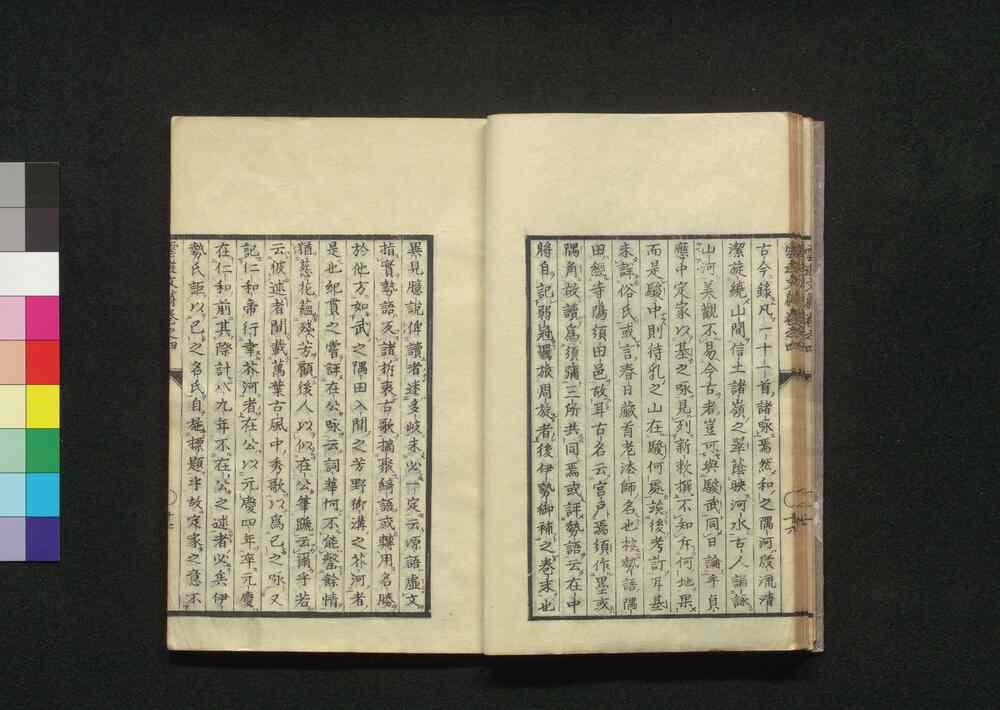 古今錄凡一十一首諸咏焉然和之隅河廢流清
潔旋繞山間信土諸嶺之翠陰映河水古人謳詠
山河美觀不易今古者豈可與駿武同日論乎貞
應中定家以基之咏見列新敕撰不知在何地果
而是駿中則待乳之山在駿何處俟後考訂耳基
未詳俗氏或言春日藏首老法師名也按勢語隅
田經寺隣須田邑故耳古名云宮戸焉須作墨或
隅角故讀爲須彌三所共同焉或評勢語云在中
將自記弱冠羈旅周旋者後伊勢御補之卷末也
異見臆說俾讀者迷多岐未必一定云源語虛文
指實勢語反諸拆裏古歌摘聚綺語或轉用名勝
於他方如武之隅田入間之芳野御溝之芥河者
是也紀貫之嘗評在公咏云詞華何不能罄餘情
猶萎花蘊殘芳顧後人以似在公筆蹤云爾乎若
云彼述者間載萬葉古風中秀歌以爲己之咏又
記仁和帝行幸芥河者在公以元慶四年卒元慶
在仁和前其際計八九年不在公之述者必矣伊
勢氏詎以己之名氏自施標題乎故定家之意不